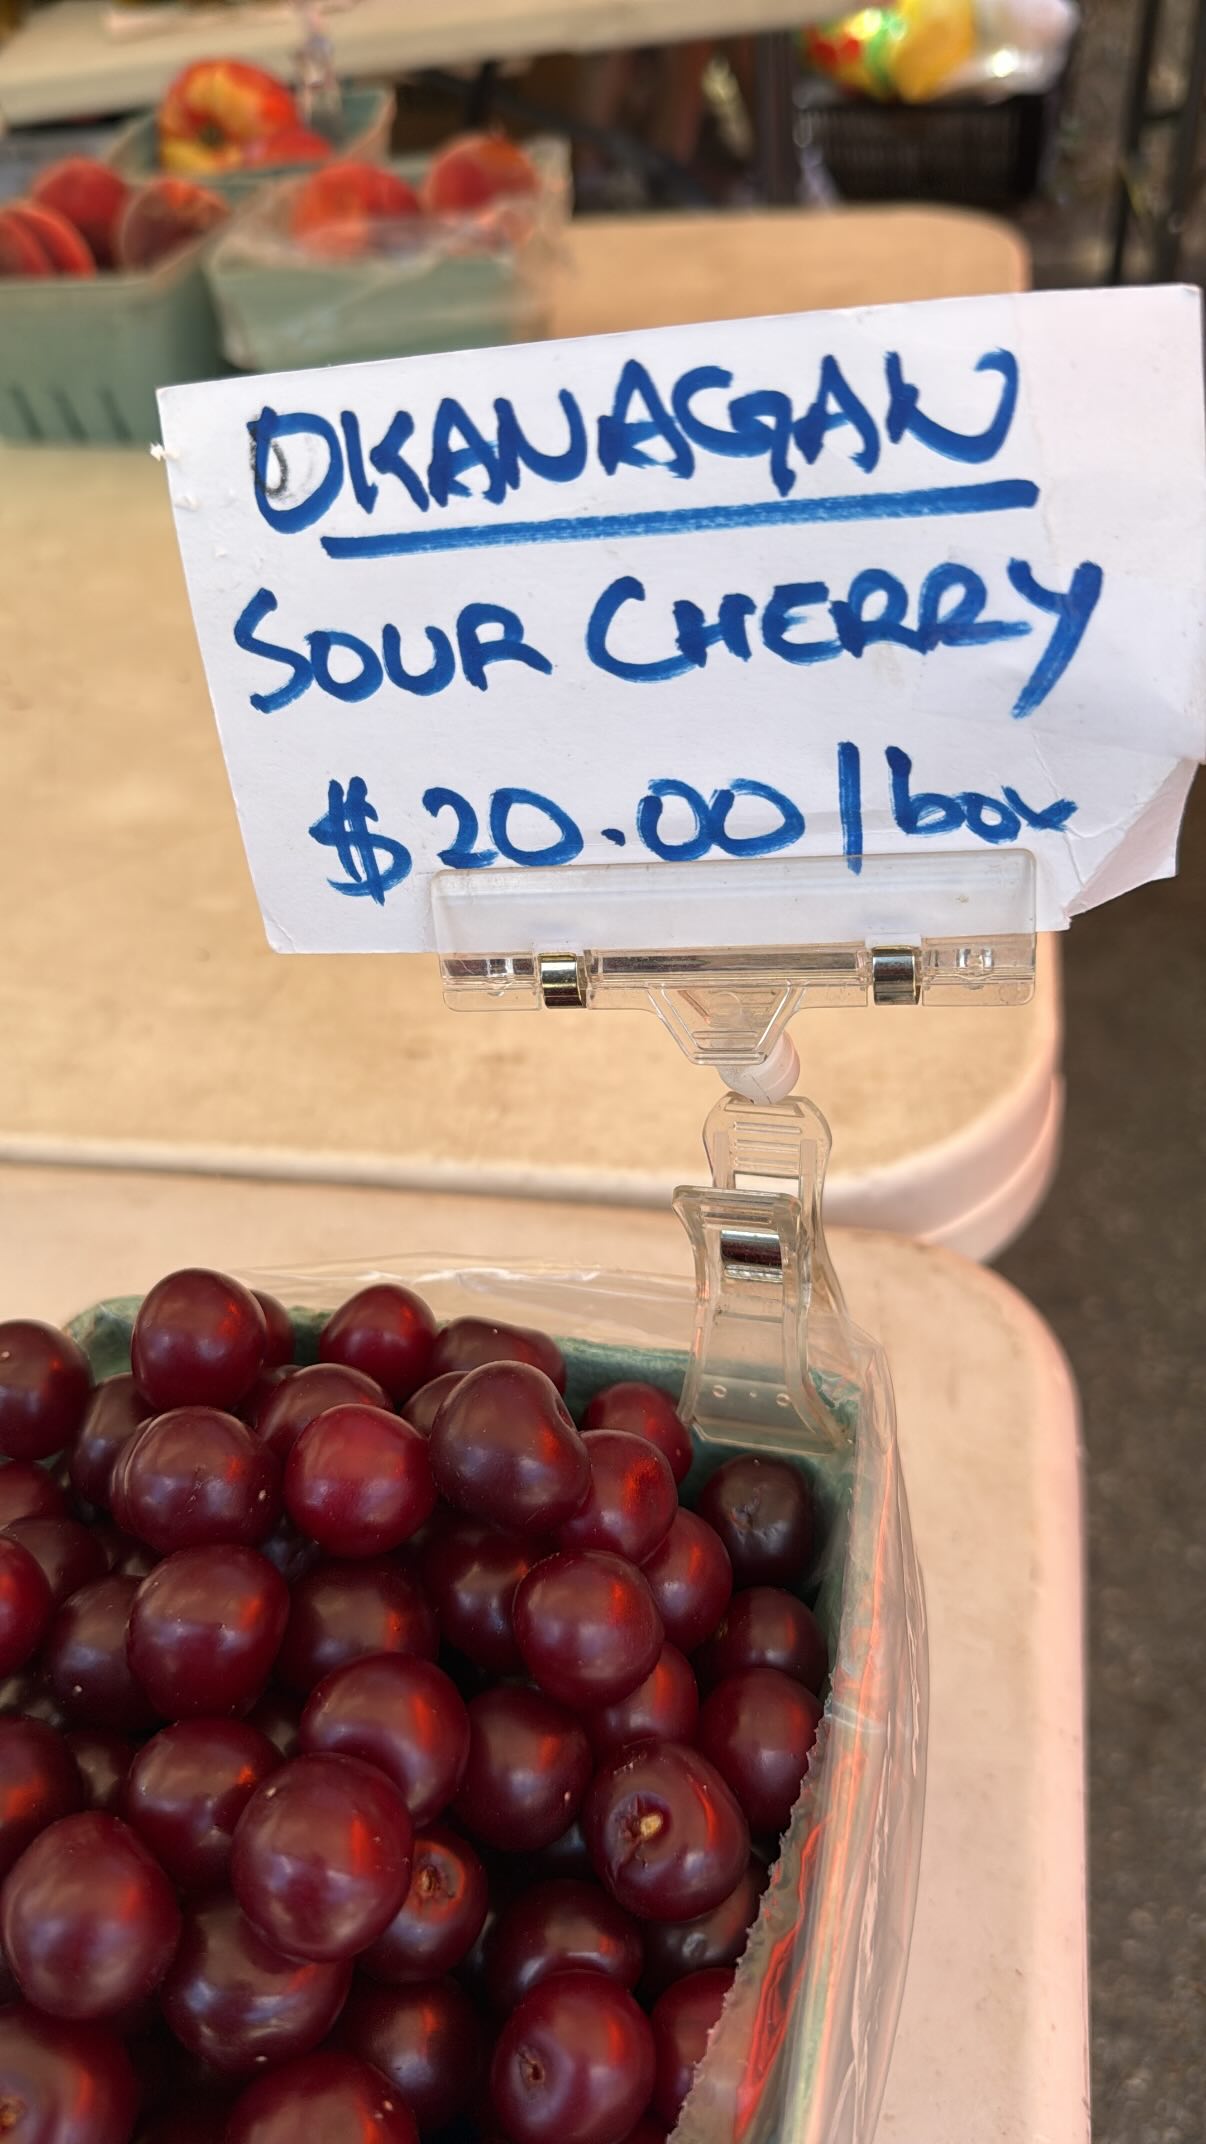 OKANAGAN
SOUR CHERRY
$20.00/box